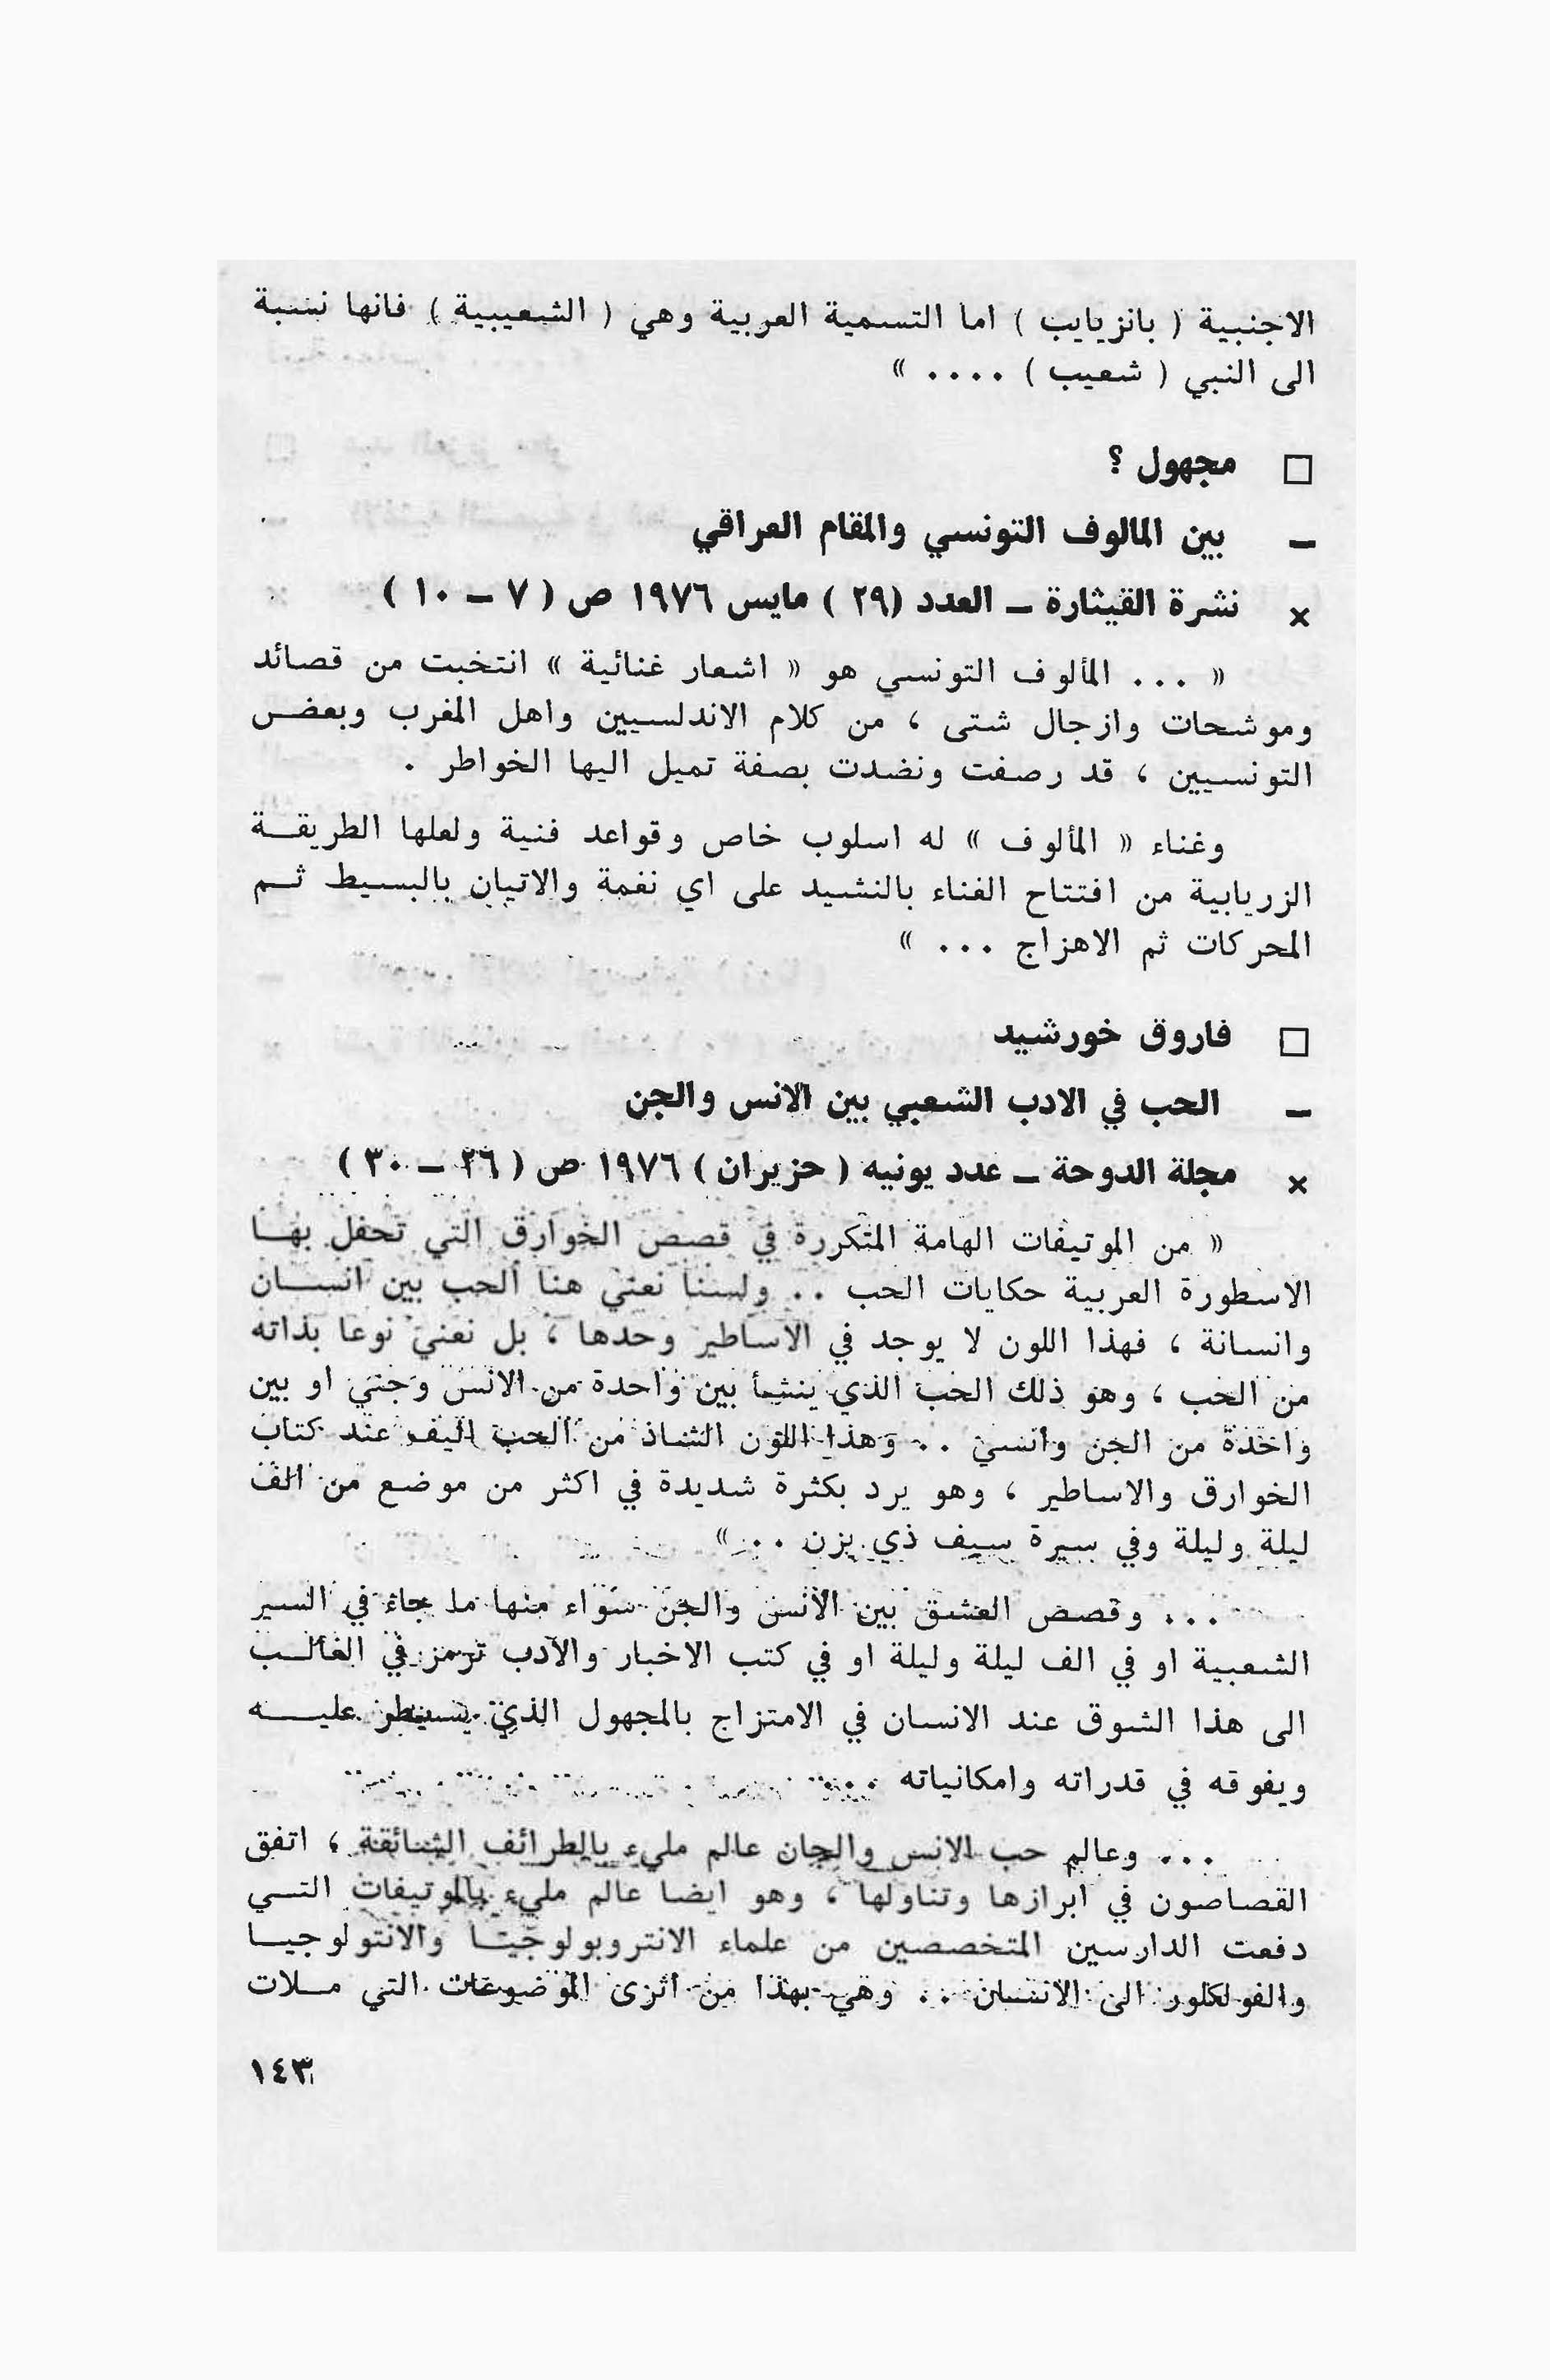 الاجنبية ( بانزيايب ) اما التسمية العربية وهي ( الشعيبية ) فانها نسبة
الى النبي ( شعيب ) .... »
□ مجهول ؟
– بين المالوف التونسي والمقام العراقي
× نشرة القيثارة – العدد (٢٩ ) مايس ١٩٧٦ ص ( ٧ – ١٠ )
« ... المألوف التونسي هو « اشعار غنائية » انتخبت من قصائد
وموشحات وازجال شتى ، من كلام الاندلسيين واهل المغرب وبعض
التونسيين ، قد رصفت ونضدت بصفة تميل اليها الخواطر .
وغناء « المألوف » له اسلوب خاص وقواعد فنية ولعلها الطريقة
الزريابية من افتتاح الغناء بالنشيد على اي نغمة والاتيان بالبسيط ثم
المحركات ثم الاهزاج ... »
□ فاروق خورشيد
– الحب في الادب الشعبي بين الانس والجن
× مجلة الدوحة – عدد يونيه ( حزيران ) ١٩٧٦ ص ( ٢٦ – ٣٠ )
« من الموتيفات الهامة المتكررة في قصص الخوارق التي تحفل بها
الاسطورة العربية حكايات الحب .. ولسنا نعني هنا الحب بين انسان
وانسانة ، فهذا اللون لا يوجد في الاساطير وحدها ، بل نعني نوعا بذاته
من الحب ، وهو ذلك الحب الذي ينشأ بين واحدة من الانس وجني او بين
واحدة من الجن وانسي .. وهذا اللون الشاذ من الحب اليف عند كتاب
الخوارق والاساطير ، وهو يرد بكثرة شديدة في اكثر من موضع من الف
ليلة وليلة وفي سيرة سيف ذي يزن ... »
... وقصص العشق بين الانس والجن سواء منها ما جاء في السير
الشعبية او في الف ليلة وليلة او في كتب الاخبار والادب ترمز في الغالب
الى هذا الشوق عند الانسان في الامتزاج بالمجهول الذي يسيطر عليه
ويفوقه في قدراته وامكانياته ...
... وعالم حب الانس والجان عالم مليء بالطرائف الشائقة ، اتفق
القصاصون في ابرازها وتناولها ، وهو ايضا عالم مليء بالموتيفات التي
دفعت الدارسين المتخصصين من علماء الانتروبولوجيا والانتولوجيا
والفولكلور الى الانسان .. وهي بهذا من اثرى الموضوعات التي ملات
١٤٣